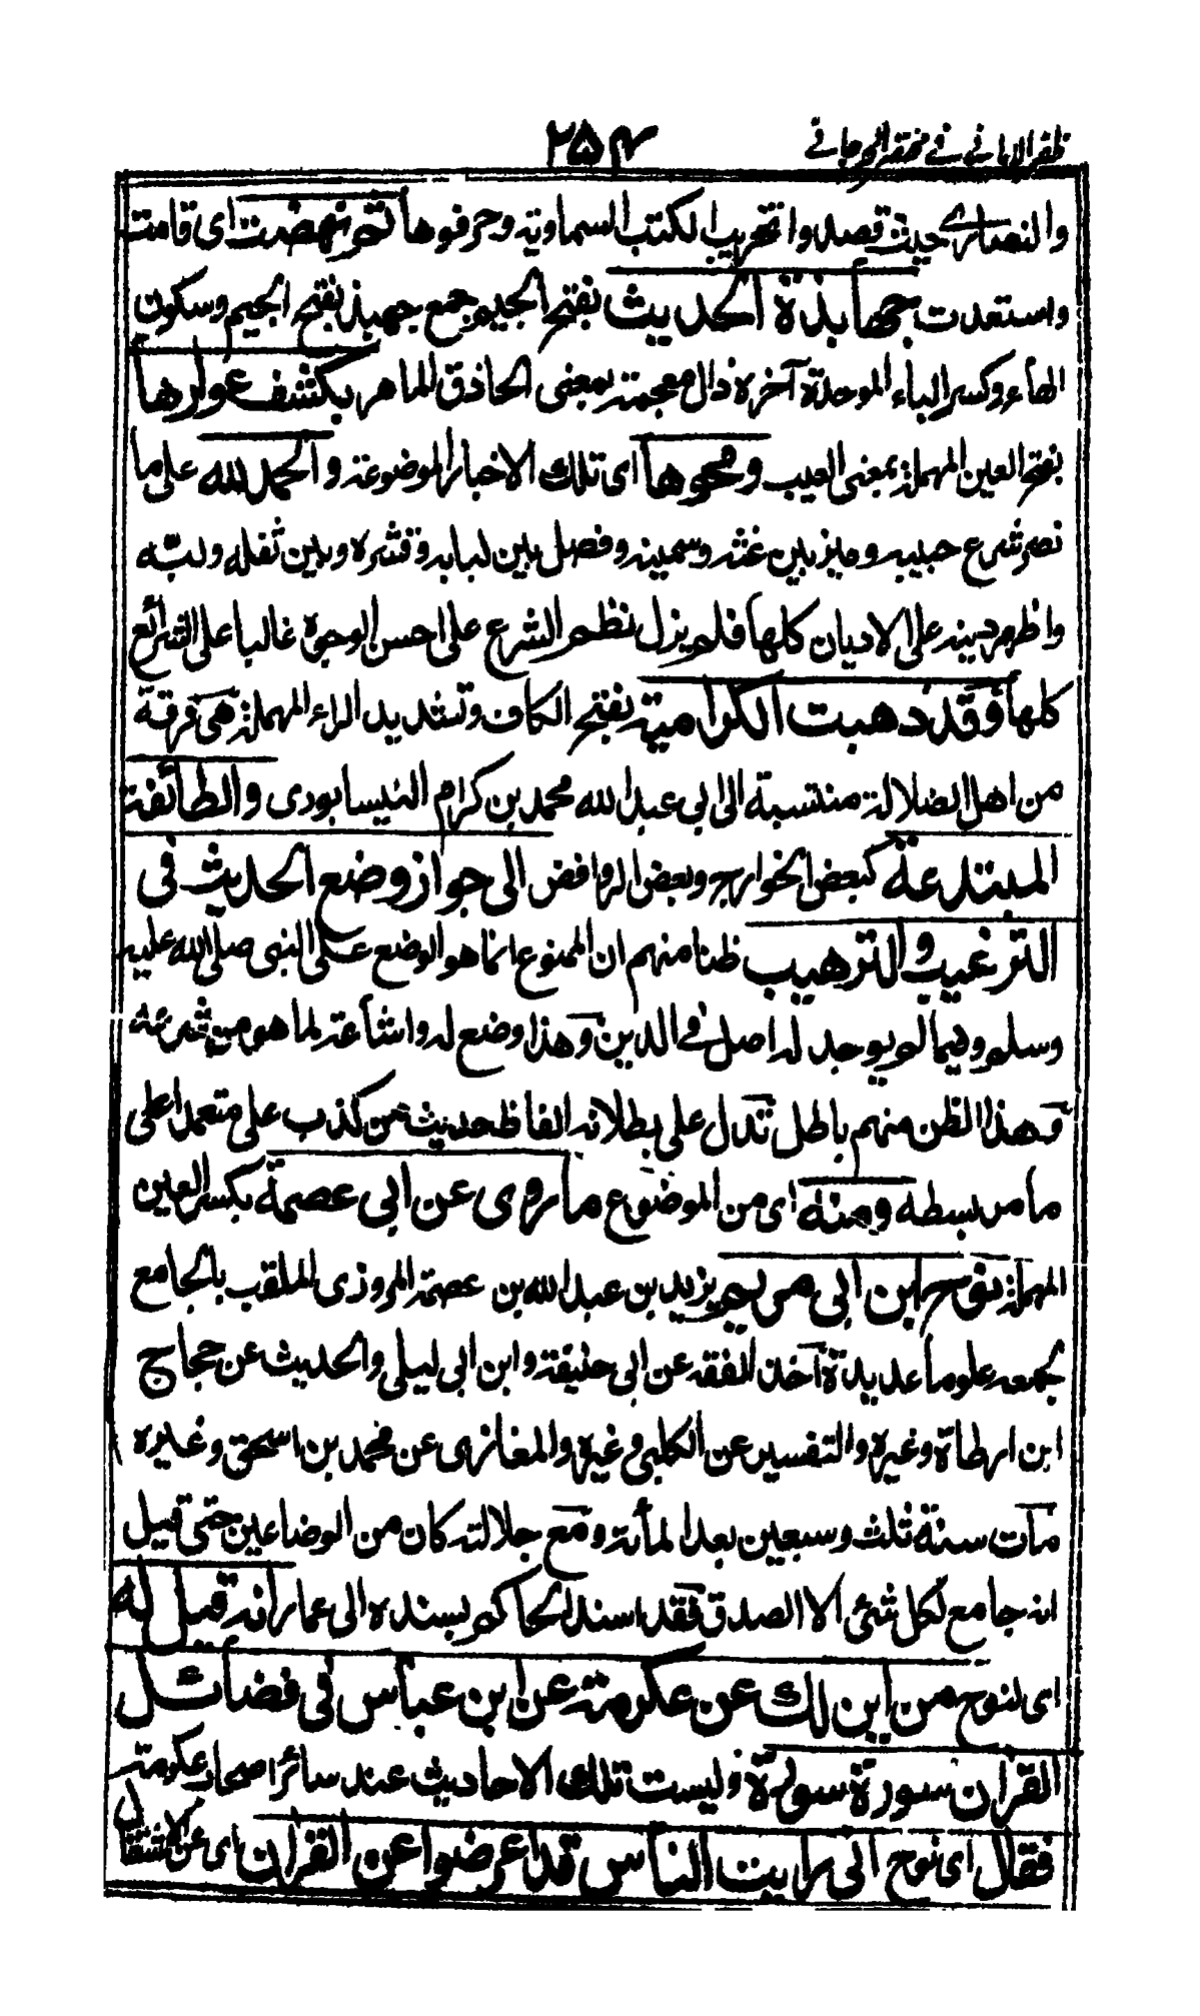 ظفر الاماني في مختصر الجرجاني ٢٥٤
والنصارے حيث قصدوا تخريب الكتب السماوية وحرفوها ثم نهضت اى قامت
واستعدت جهابذة الحديث بفتح الجيم جمع جهبذ بفتح الجيم وسكون
الهاء وكسر الباء الموحدة آخره ذال معجمة بمعنى الحاذق الماهر بكشف عوارها
بفتح العين المهملة بمعنى العيب ومحوها اى تلك الاخبار الموضوعة والحمد لله على ما
نصر شرع حبيبه وميز بين غثه وسمينه وفصل بين لبابه وقشره وبين ثفله ولبّه
واظهر دينه على الاديان كلها فلم يزل نظم الشرع على احسن الوجوه غالبا على الشرائع
كلها وقد ذهبت الكرامية بفتح الكاف وتشديد الراء المهملة هى فرقة
من اهل الضلالة منتسبة الى ابى عبد الله محمد بن كرام النيسابورى والطائفة
المبتدعة كبعض الخوارج وبعض الروافض الى جواز وضع الحديث فى
الترغيب والترهيب ظنا منهم ان الممنوع انما هو الوضع على النبى صلى الله عليه
وسلم وفيما لم يوجد له اصل في الدين وهذا وضع له واشاعة لما هو من شرعه
وهذا الظن منهم باطل تدل على بطلانه الفاظ حديث من كذب على متعمدا على
ما مر بسطه ومنه اى من الموضوع ما روى عن ابى عصمة بكسر العين
المهملة نوح ابن ابى مريم يزيد بن عبد الله بن عصمة المروزى الملقب بالجامع
لجمعه علوما عديدة آخذ الفقه عن ابى حنيفة وابن ابى ليلى والحديث عن حجاج
ابن ارطاة وغيره والتفسير عن الكلبى وغيره والمغازى عن محمد بن اسحق وغيره
مات سنة ثلث وسبعين بعد المأة ومع جلالته كان من الوضاعين حتى قيل
انه جامع لكل شئ الا الصدق فقد اسند الحاكم بسنده الى عمار انه قيل له
اى لنوح من اين لك عن عكرمة عن ابن عباس فى فضائل
القران سورة سورة وليست تلك الاحاديث عند سائر اصحاب عكرمة
فقال اى نوح انى رايت الناس قد اعرضوا عن القران اى عن الاشتغال